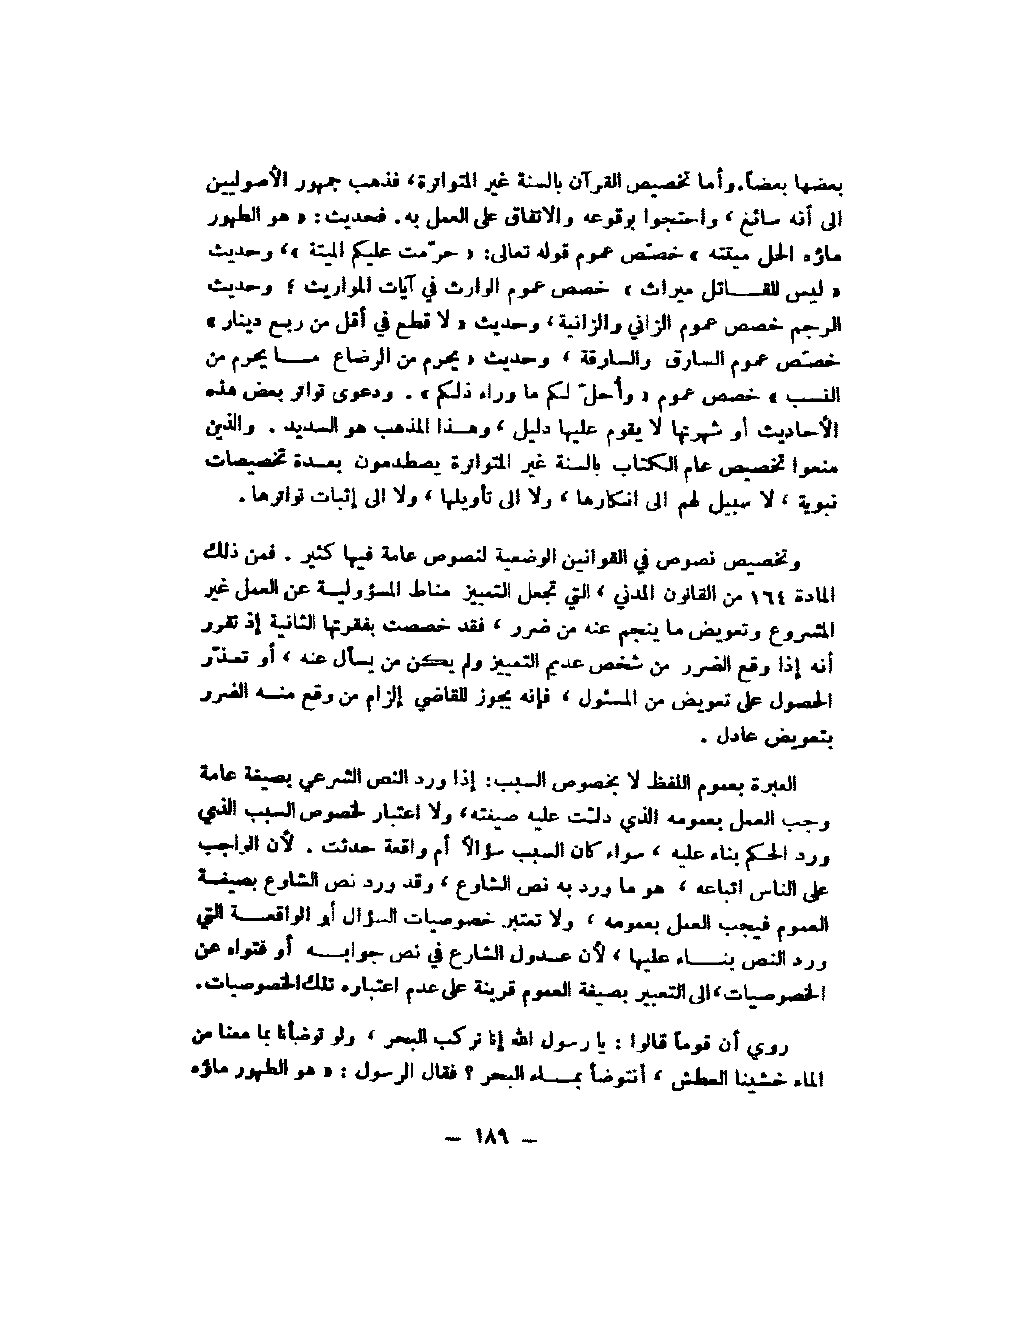 بعضها بعضاً. وأما تخصيص القرآن بالسنة غير المتواترة، فذهب جمهور الأصوليين
الى أنه سائغ ، واحتجوا بوقوعه والاتفاق على العمل به. فحديث: « هو الطهور
ماؤه الحل ميتته » خصّص عموم قوله تعالى: « حرّمت عليكم الميتة »، وحديث
« ليس للقـــاتل ميراث » خصص عموم الوارث في آيات المواريث ؛ وحديث
الرجم خصص عموم الزاني والزانية، وحديث « لا قطع في أقل من ربع دينار »
خصّص عموم السارق والسارقة ، وحديث « يحرم من الرضاع مــا يحرم من
النسب » خصص عموم « وأحلّ لكم ما وراء ذلكم » . ودعوى تواتر بعض هذه
الأحاديث أو شهرتها لا يقوم عليها دليل ، وهــذا المذهب هو السديد . والذين
منعوا تخصيص عام الكتاب بالسنة غير المتواترة يصطدمون بعــدة تخصيصات
نبوية ، لا سبيل لهم الى انكارها ، ولا الى تأويلها ، ولا الى إثبات تواترها .
وتخصيص نصوص في القوانين الوضعية لنصوص عامة فيها كثير . فمن ذلك
المادة ١٦٤ من القانون المدني ، التي تجعل التمييز مناط المسؤوليــة عن العمل غير
المشروع وتعويض ما ينجم عنه من ضرر ، فقد خصصت بفقرتها الثانية إذ تقرر
أنه إذا وقع الضرر من شخص عديم التمييز ولم يكن من يسأل عنه ، أو تعذّر
الحصول على تعويض من المسئول ، فإنه يجوز للقاضي إلزام من وقع منــه الضرر
بتعويض عادل .
العبرة بعموم اللفظ لا بخصوص السبب: إذا ورد النص الشرعي بصيغة عامة
وجب العمل بعمومه الذي دلّت عليه صيغته، ولا اعتبار لخصوص السبب الذي
ورد الحكم بناء عليه ، سواء كان السبب سؤالاً أم واقعة حدثت . لأن الواجب
على الناس اتباعه ، هو ما ورد به نص الشارع ، وقد ورد نص الشارع بصيغــة
العموم فيجب العمل بعمومه ، ولا تعتبر خصوصيات السؤال أو الواقعـــة التي
ورد النص بنـــاء عليها ، لأن عــدول الشارع في نص جوابــه أو فتواه عن
الخصوصيات، الى التعبير بصيغة العموم قرينة على عدم اعتباره تلك الخصوصيات.
روي أن قوماً قالوا : يا رسول الله إنا نركب البحر ، ولو توضأنا بما معنا من
الماء خشينا العطش ، أنتوضأ بمــاء البحر ؟ فقال الرسول : « هو الطهور ماؤه
– ١٨٩ –